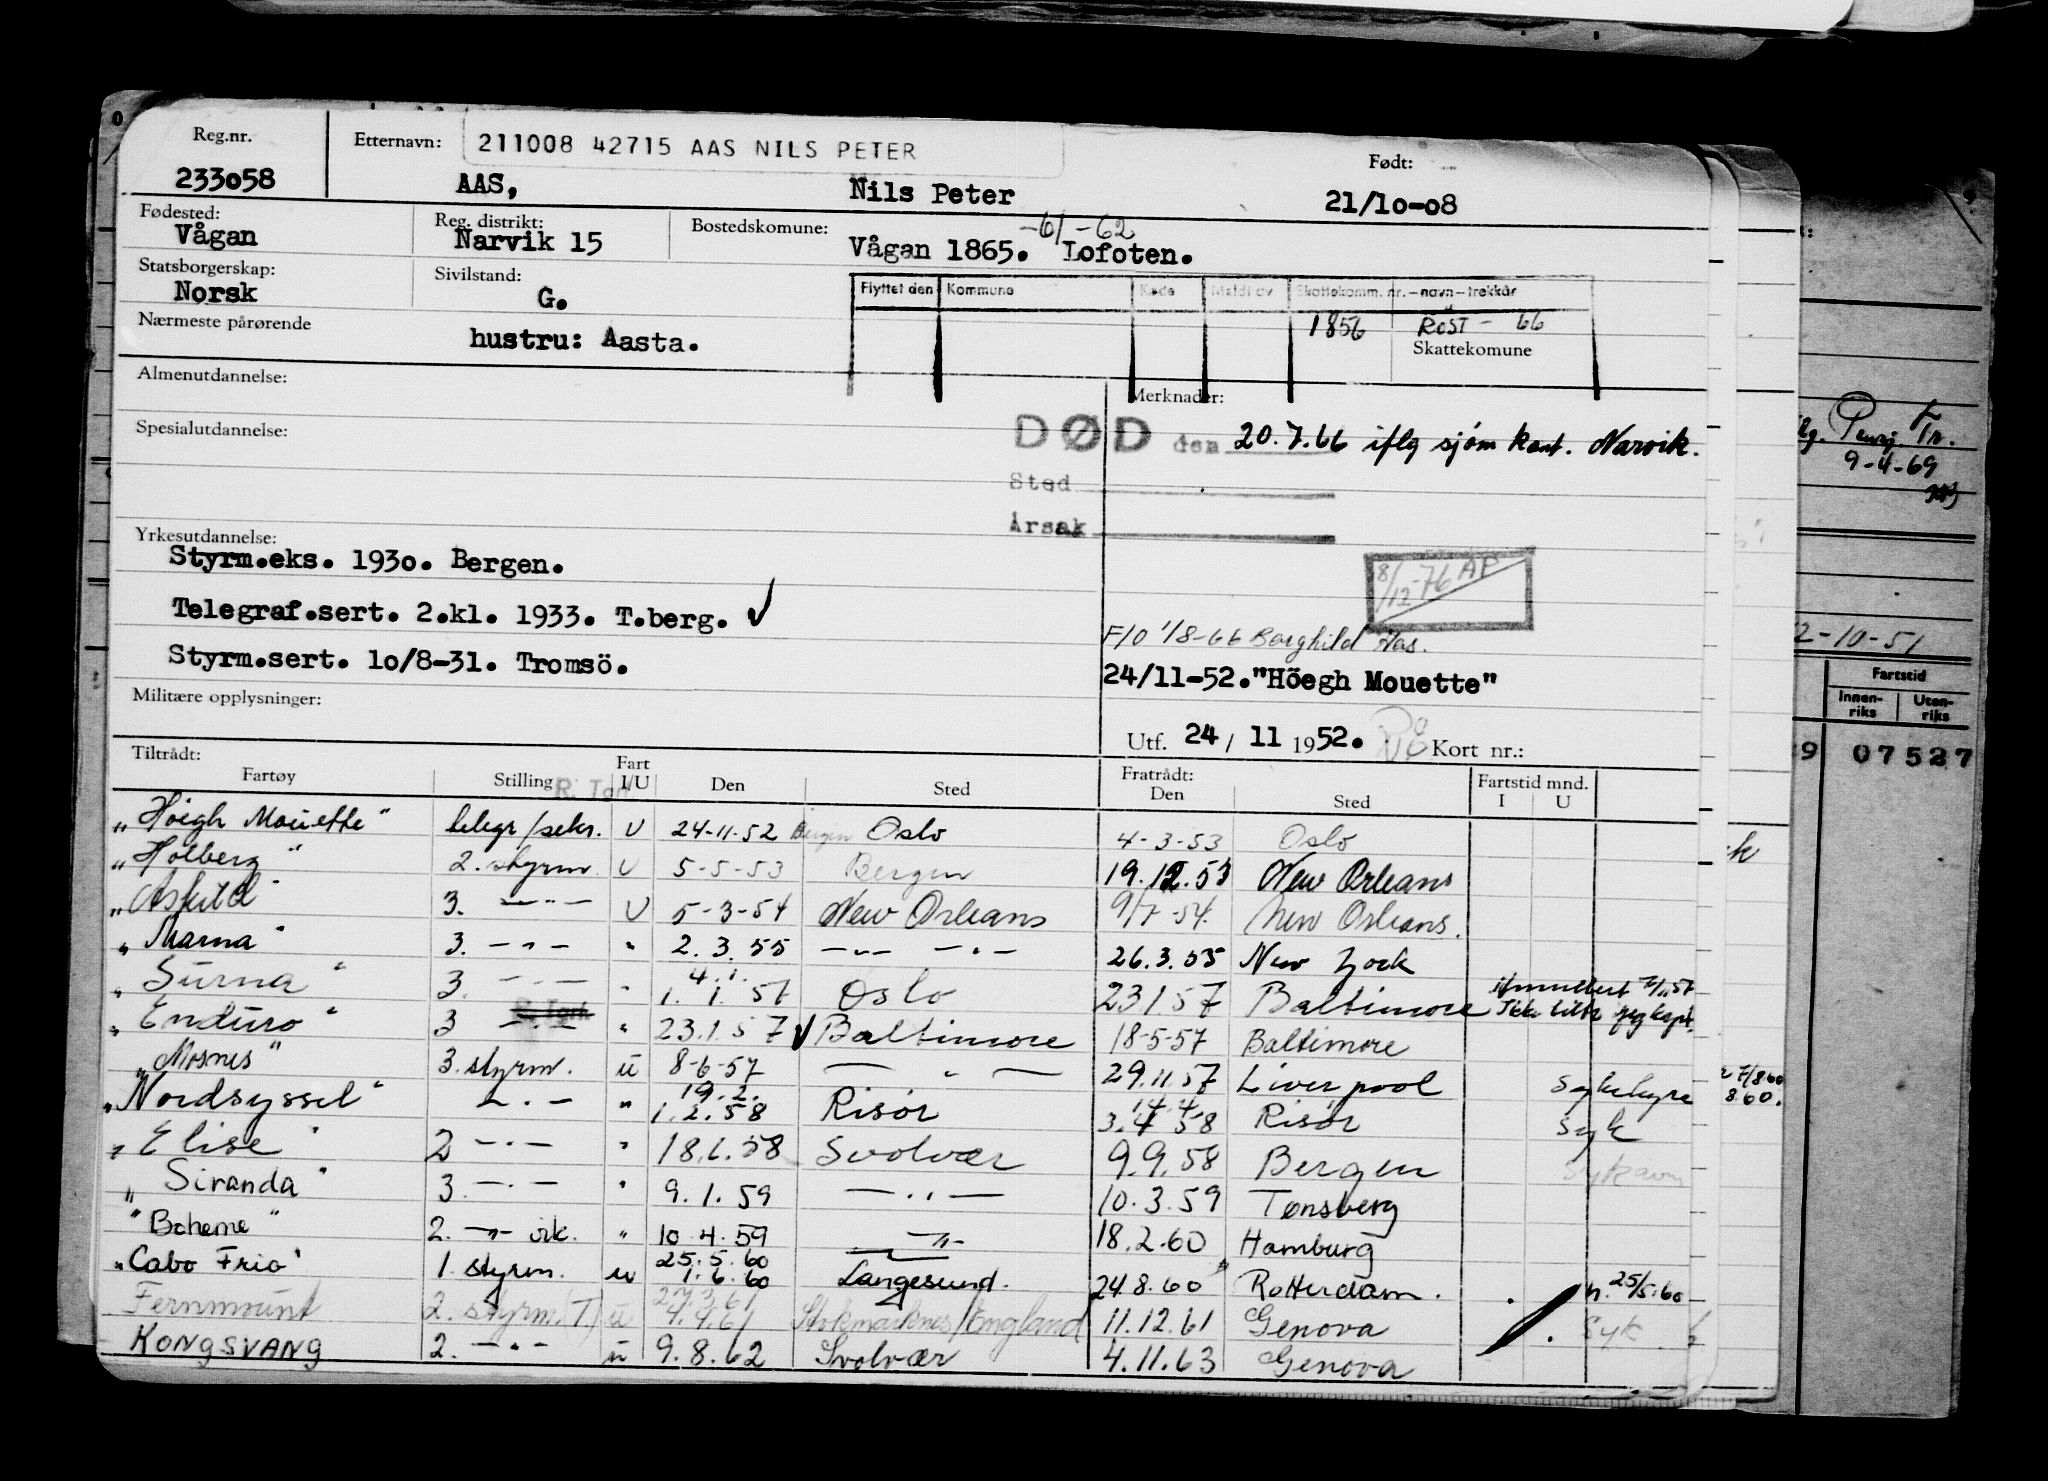 Reg.nr. Etternavn: 211008 42715 AAS NILS PETER Født:
233058 AAS, Nils Peter 21/10-08
Fødested: Reg. distrikt: Bostedskomune: -61-62
Vågan Narvik 15 Vågan 1865. Lofoten.
Statsborgerskap: Sivilstand: Flyttet den Kommune Kode Meldt av Skattekomm. nr. - navn - trekkår
Norsk G.
1856 RØST - 66
Nærmeste pårørende Skattekomune
hustru: Aasta.
Almenutdannelse: Merknader:
Spesialutdannelse: DØD den 20.7.66 iflg sjøm kont. Narvik.
Sted
Årsak
Yrkesutdannelse:
Styrm.eks. 1930. Bergen.
8/12-76 AP
Telegraf.sert. 2.kl. 1933. T.berg. ✓
F/O 1/8-66 Borghild Aas.
Styrm.sert. 10/8-31. Tromsö.
24/11-52."Höegh Mouette"
Militære opplysninger:
Utf. 24/ 11 1952. Kort nr.:
Tiltrådt: Fratrådt: Fartstid mnd.
Fartøy Stilling Fart I/U Den Sted Den Sted I U
"Høigh Mouette" telegr/sekr. U 24-11-52 Bergen Oslo 4-3-53 Oslo
"Holberg" 2. styrm U 5-5-53 Bergen 19.12.53 New Orleans
"Askild" 3. -"- U 5-3-54 New Orleans 9/7-54. New Orleans.
"Marna" 3. -"- " 2.3.55 -"- -"- 26.3.55 New York
"Surna" 3. -"- " 4.1. 1.1.57 Oslo 23.1.57 Baltimore
"Enduro" 3 -"- " 23.1.57 ✓ Baltimore 18-5-57 Baltimore
"Mosnes" 3. styrm. u 8-6-57 -"- 29.11.57 Liverpool Sykehyre
"Nordsyssel" -"- " 19.2. 1.2.58 Risør 14.4. 3.4.58 Risør Syk
"Elise" 2 -"- " 18.6.58 Svolvær 9.9.58 Bergen
"Siranda" 3. -"- " 9.1.59 -"- 10.3.59 Tønsberg
"Boheme" 2. -"- vik. " 10.4.59 -"- 18.2.60 Hamburg
"Cabo Frio" 1. styrm. u 25.5.60 1.6.60 Langesund. 24.8.60 Rotterdam. 25/5-60
Fernmount 2. styrm.(T) u 27.3.61 4.4.61 Stokmarknes/England 11.12.61 Genova Syk
KONGSVANG 2. -"- u 9.8.62 Svolvær 4.11.63 Genova
9-4-69
2-10-51
Fartstid
Innenriks Utenriks
9 07527
7/8 60
8 60.